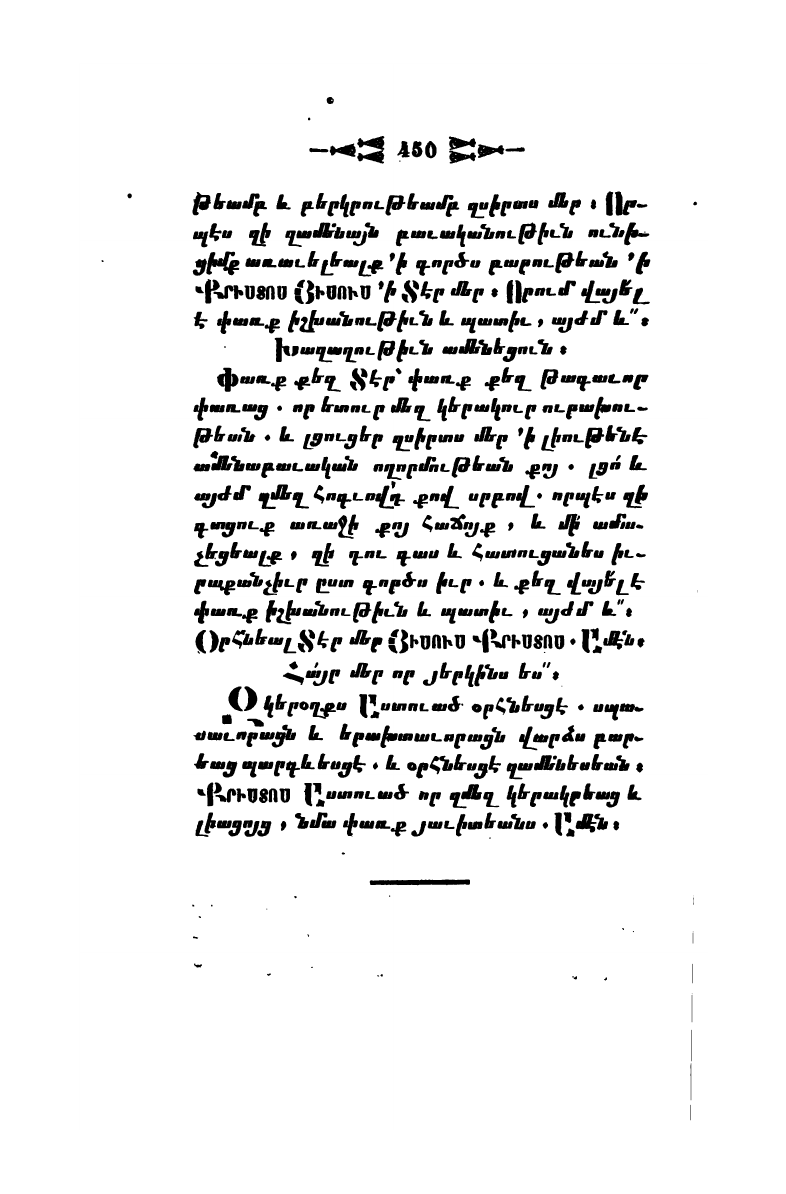 450
թեամբ և բերկրութեամբ զսիրտս մեր ։ Որ-
պէս զի զամենայն բաւականութիւն ունի-
ցիմք առաւելեալք ՚ի գործս բարութեան ՚ի
ՔՐԻՍՏՈՍ ՅԻՍՈՒՍ ՚ի Տէր մեր ։ Որում վայել
է փառք իշխանութիւն և պատիւ , այժմ և՟ ։
Խաղաղութիւն ամենեցուն ։
Փառք քեզ Տէր՝ փառք քեզ Թագաւոր
փառաց . որ ետուր մեզ կերակուր ուրախու-
թեան . և լցուցեր զսիրտս մեր ՚ի լիութենէ
ամենաբաւական ողորմութեան քոյ . լցո՛ և
այժմ զմեզ Հոգւովդ քով սրբով. որպէս զի
գտցուք առաջի քոյ հաճոյք , և մի՛ ամա-
չեցեալք , զի դու գաս և հատուցանես իւ-
րաքանչիւր ըստ գործս իւր . և քեզ վայել է
փառք իշխանութիւն և պատիւ , այժմ և՟ ։
Օրհնեալ Տէր մեր ՅԻՍՈՒՍ ՔՐԻՍՏՈՍ . Ամէն։
Հա՛յր մեր որ յերկինս ես՟ ։
Զկերօղքս Աստուած օրհնեսցէ . սպա-
սաւորացն և երախտաւորացն վարձս բար-
եաց պարգևեսցէ . և օրհնեսցէ զամենեսեան ։
ՔՐԻՍՏՈՍ Աստուած որ զմեզ կերակրեաց և
լիացոյց , նմա փառք յաւիտեանս . Ամէն ։